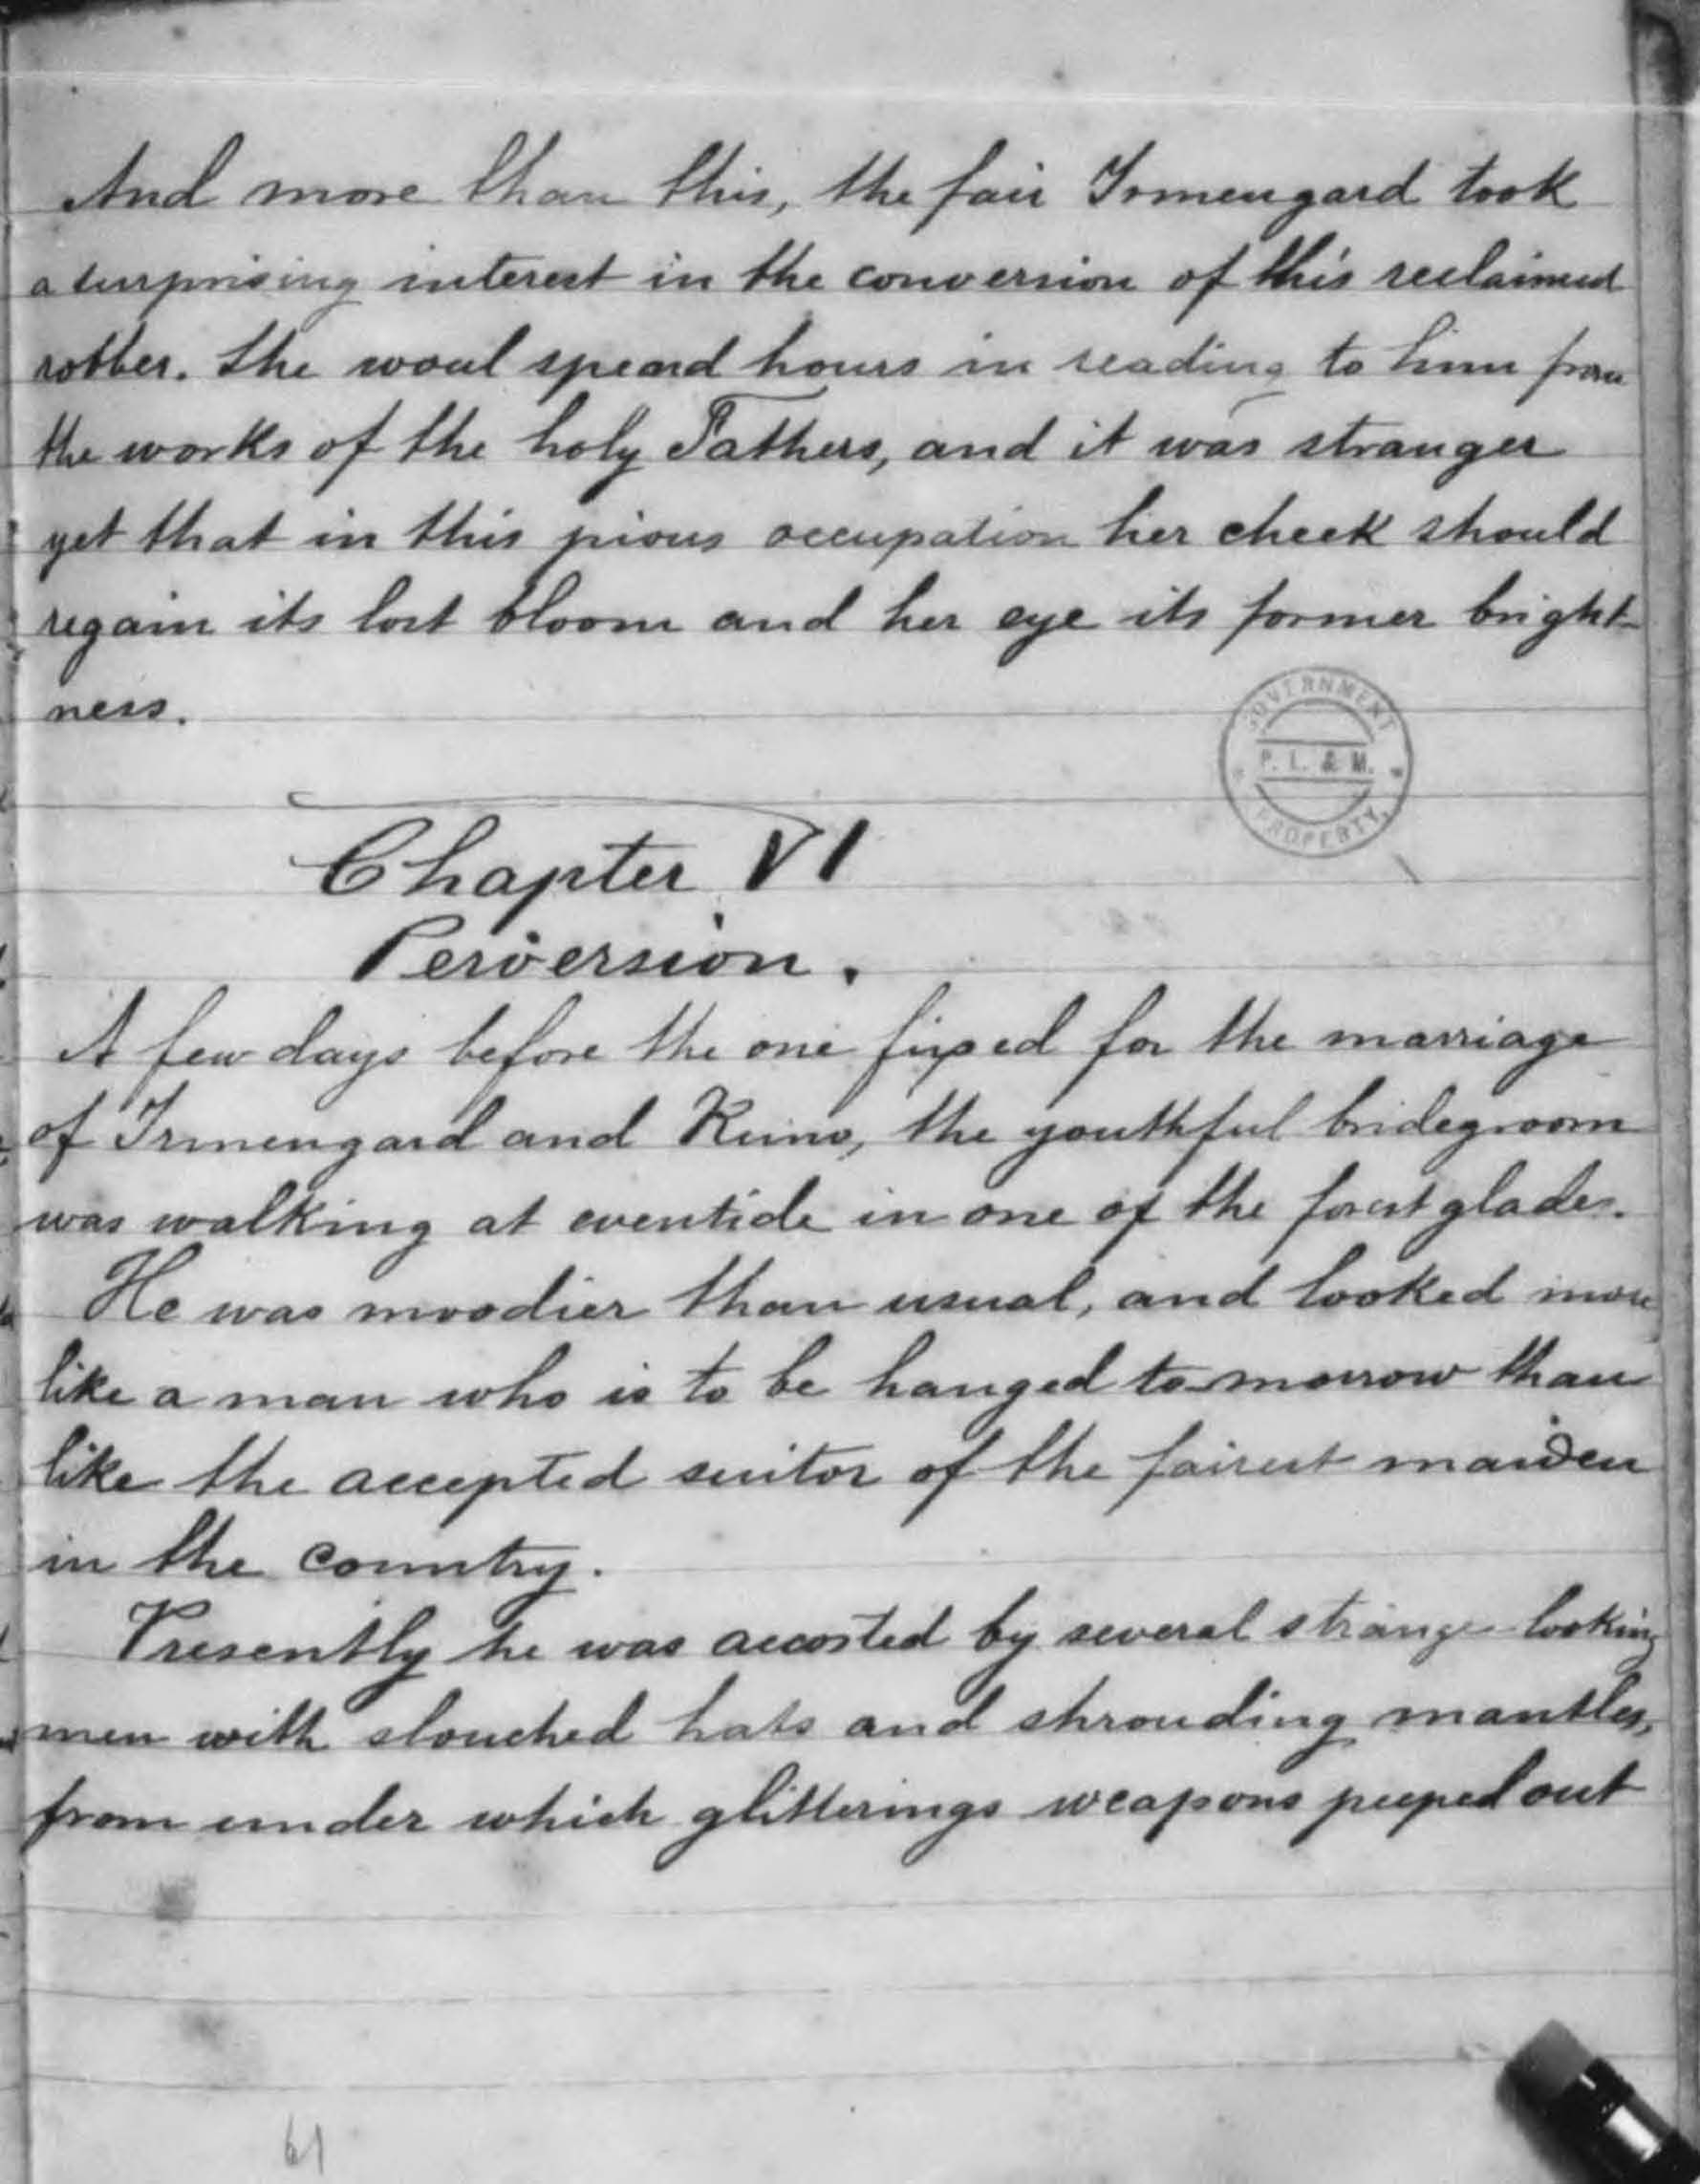 And more than this, the fair Irmengard took
a surprising interest in the conversion of this reclaimed
robber. She woul spend hours in reading to him from
the works of the holy Fathers, and it was stranger
yet that in this pious occupation her cheek should
regain its lost bloom and her eye its former bright-
ness.
GOVERNMENT
P. L. & M.
PROPERTY.
Chapter VI
Perversion.
A few days before the one fixed for the marriage
of Irmengard and Kuno, the youthful bridegroom
was walking at eventide in one of the forest glades.
He was moodier than usual, and looked more
like a man who is to be hanged to-morrow than
like the accepted suitor of the fairest maiden
in the country.
Presently he was accosted by several strange-looking
men with slouched hats and shrouding mantles,
from under which glitterings weapons peeped out
61